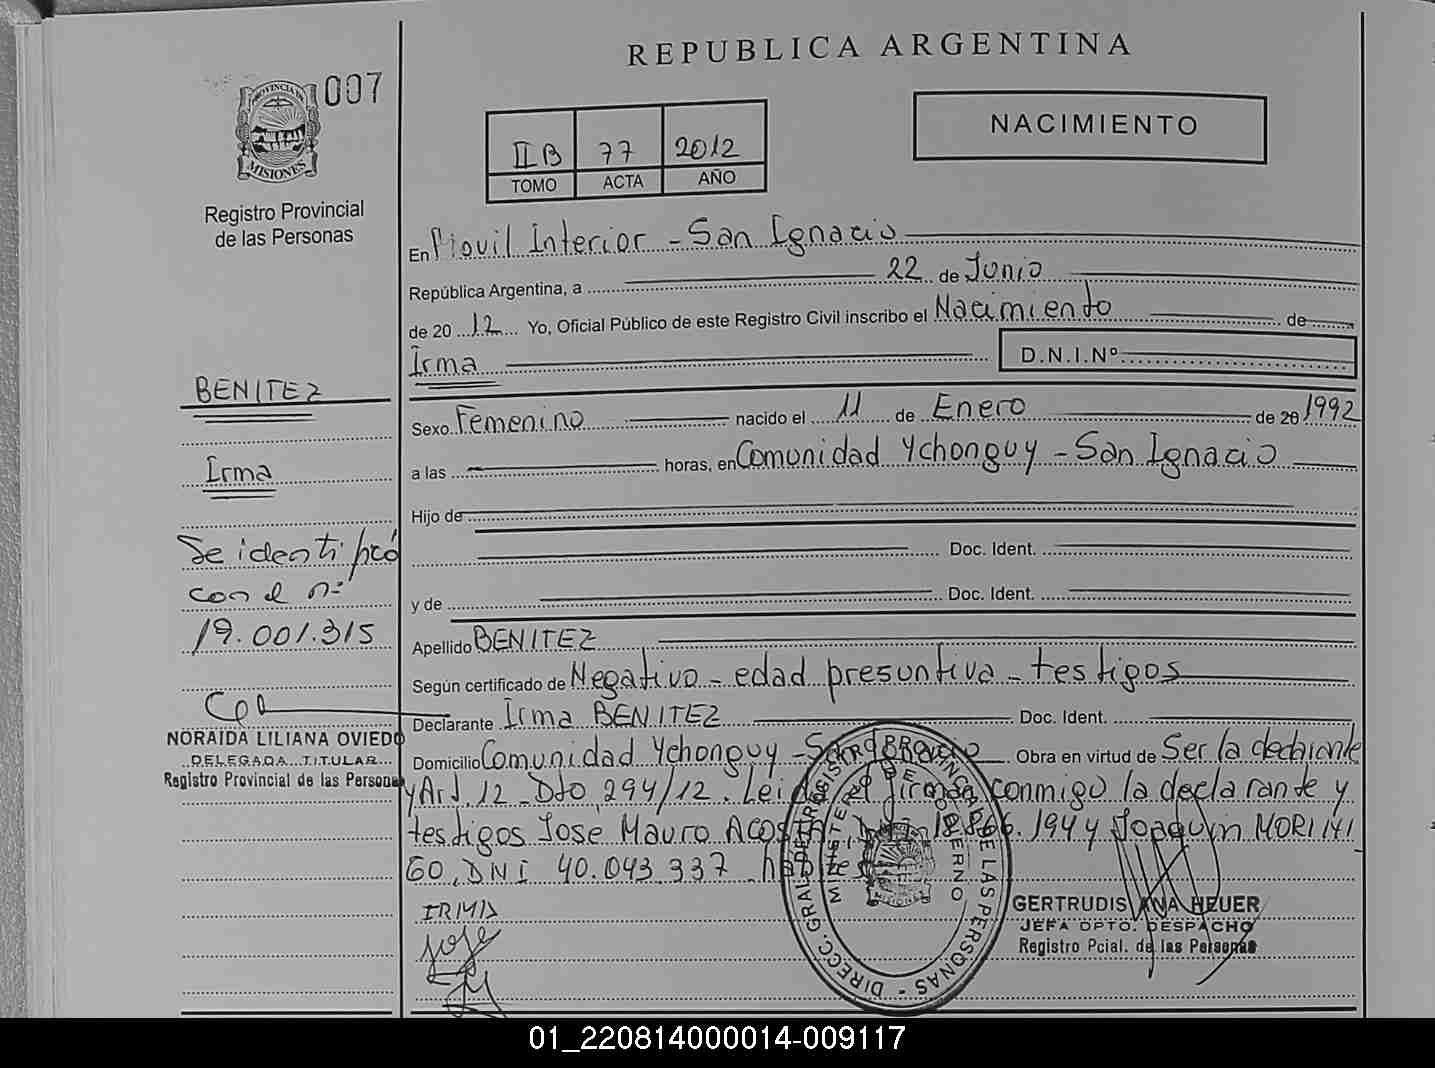 REPUBLICA ARGENTINA
007
PROVINCIA DE
MISIONES
Registro Provincial
de las Personas
II B 77 2012
TOMO ACTA AÑO
NACIMIENTO
En Movil Interior - San Ignacio
República Argentina, a 22 de Junio
de 20 12 Yo, Oficial Público de este Registro Civil inscribo el Nacimiento de
Irma D.N.I.Nº
BENITEZ
Irma
Se identificó
con el nº
19.001.315
NORAIDA LILIANA OVIEDO
DELEGADA TITULAR
Registro Provincial de las Personas
Sexo Femenino nacido el 11 de Enero de 20 1992
a las horas, en Comunidad Ychonguy - San Ignacio
Hijo de
Doc. Ident.
y de Doc. Ident.
Apellido BENITEZ
Según certificado de Negativo - edad presuntiva - testigos
Declarante Irma BENITEZ Doc. Ident.
Domicilio Comunidad Ychonguy - San Ignacio Obra en virtud de Ser la declarante
y Art. 12 - Dto 294/12. Leida el firman conmigo la declarante y
testigos José Mauro ACOSTA, 18.866.194 y Joaquin MORINI
GO, DNI 40.043.337
IRMA
José
DIRECC. GRAL. DEL REGISTRO PROVINCIAL DE LAS PERSONAS
MINISTERIO DE GOBIERNO
MISIONES
GERTRUDIS ANA HEUER
JEFA DPTO. DESPACHO
Registro Pcial. de las Personas
01_220814000014-009117